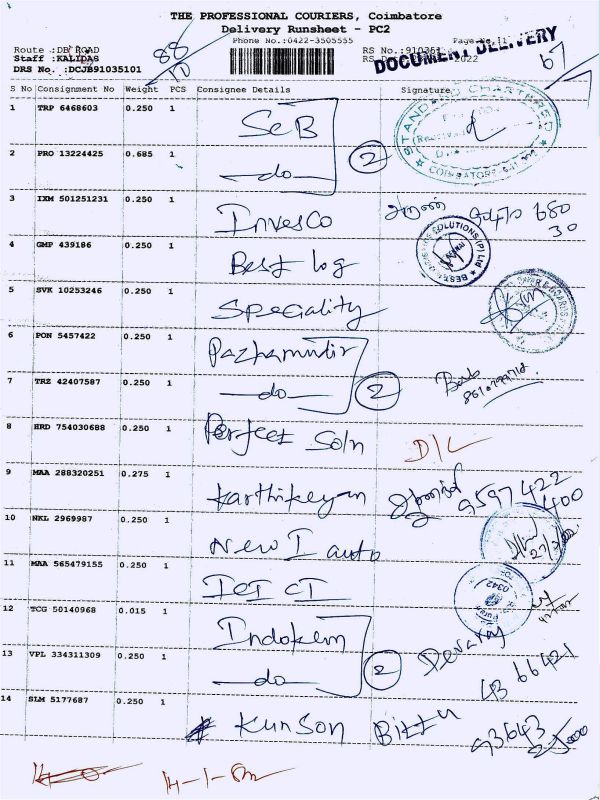 THE PROFESSIONAL COURIERS, Coimbatore
Delivery Runsheet - PC2
Phone No.:0422-3505555
Page No.
Route :DB ROAD
Staff :KALIDAS
DRS No. :DCJB91035101
88
10
RS No.:
2022
DOCUMENT DELIVERY
67
S No Consignment No Weight PCS Consignee Details Signature
1 TRP 6468603 0.250 1 SCB
STANDARD CHARTERED
COIMBATORE
2 PRO 13224425 0.685 1 —do— 2
3 IXM 501251231 0.250 1 Invesco
30
4 GMP 439186 0.250 1 Best log
SOLUTIONS (P) Ltd
5 SVK 10253246 0.250 1 Speciality
6 PON 5457422 0.250 1 Pazhamudir
7 TRZ 42407587 0.250 1 —do— 2
8 HRD 754030688 0.250 1 Perfect Soln D/L
9 MAA 288320251 0.275 1 Karthikeyan 9597 422 400
10 NKL 2969987 0.250 1 New I auto
11 MAA 565479155 0.250 1 ICICI
12 TCG 50140968 0.015 1 Indokem
13 VPL 334311309 0.250 1 —do— 2 Devaraj
14 SLM 5177687 0.250 1 Kunson Bittu 93643